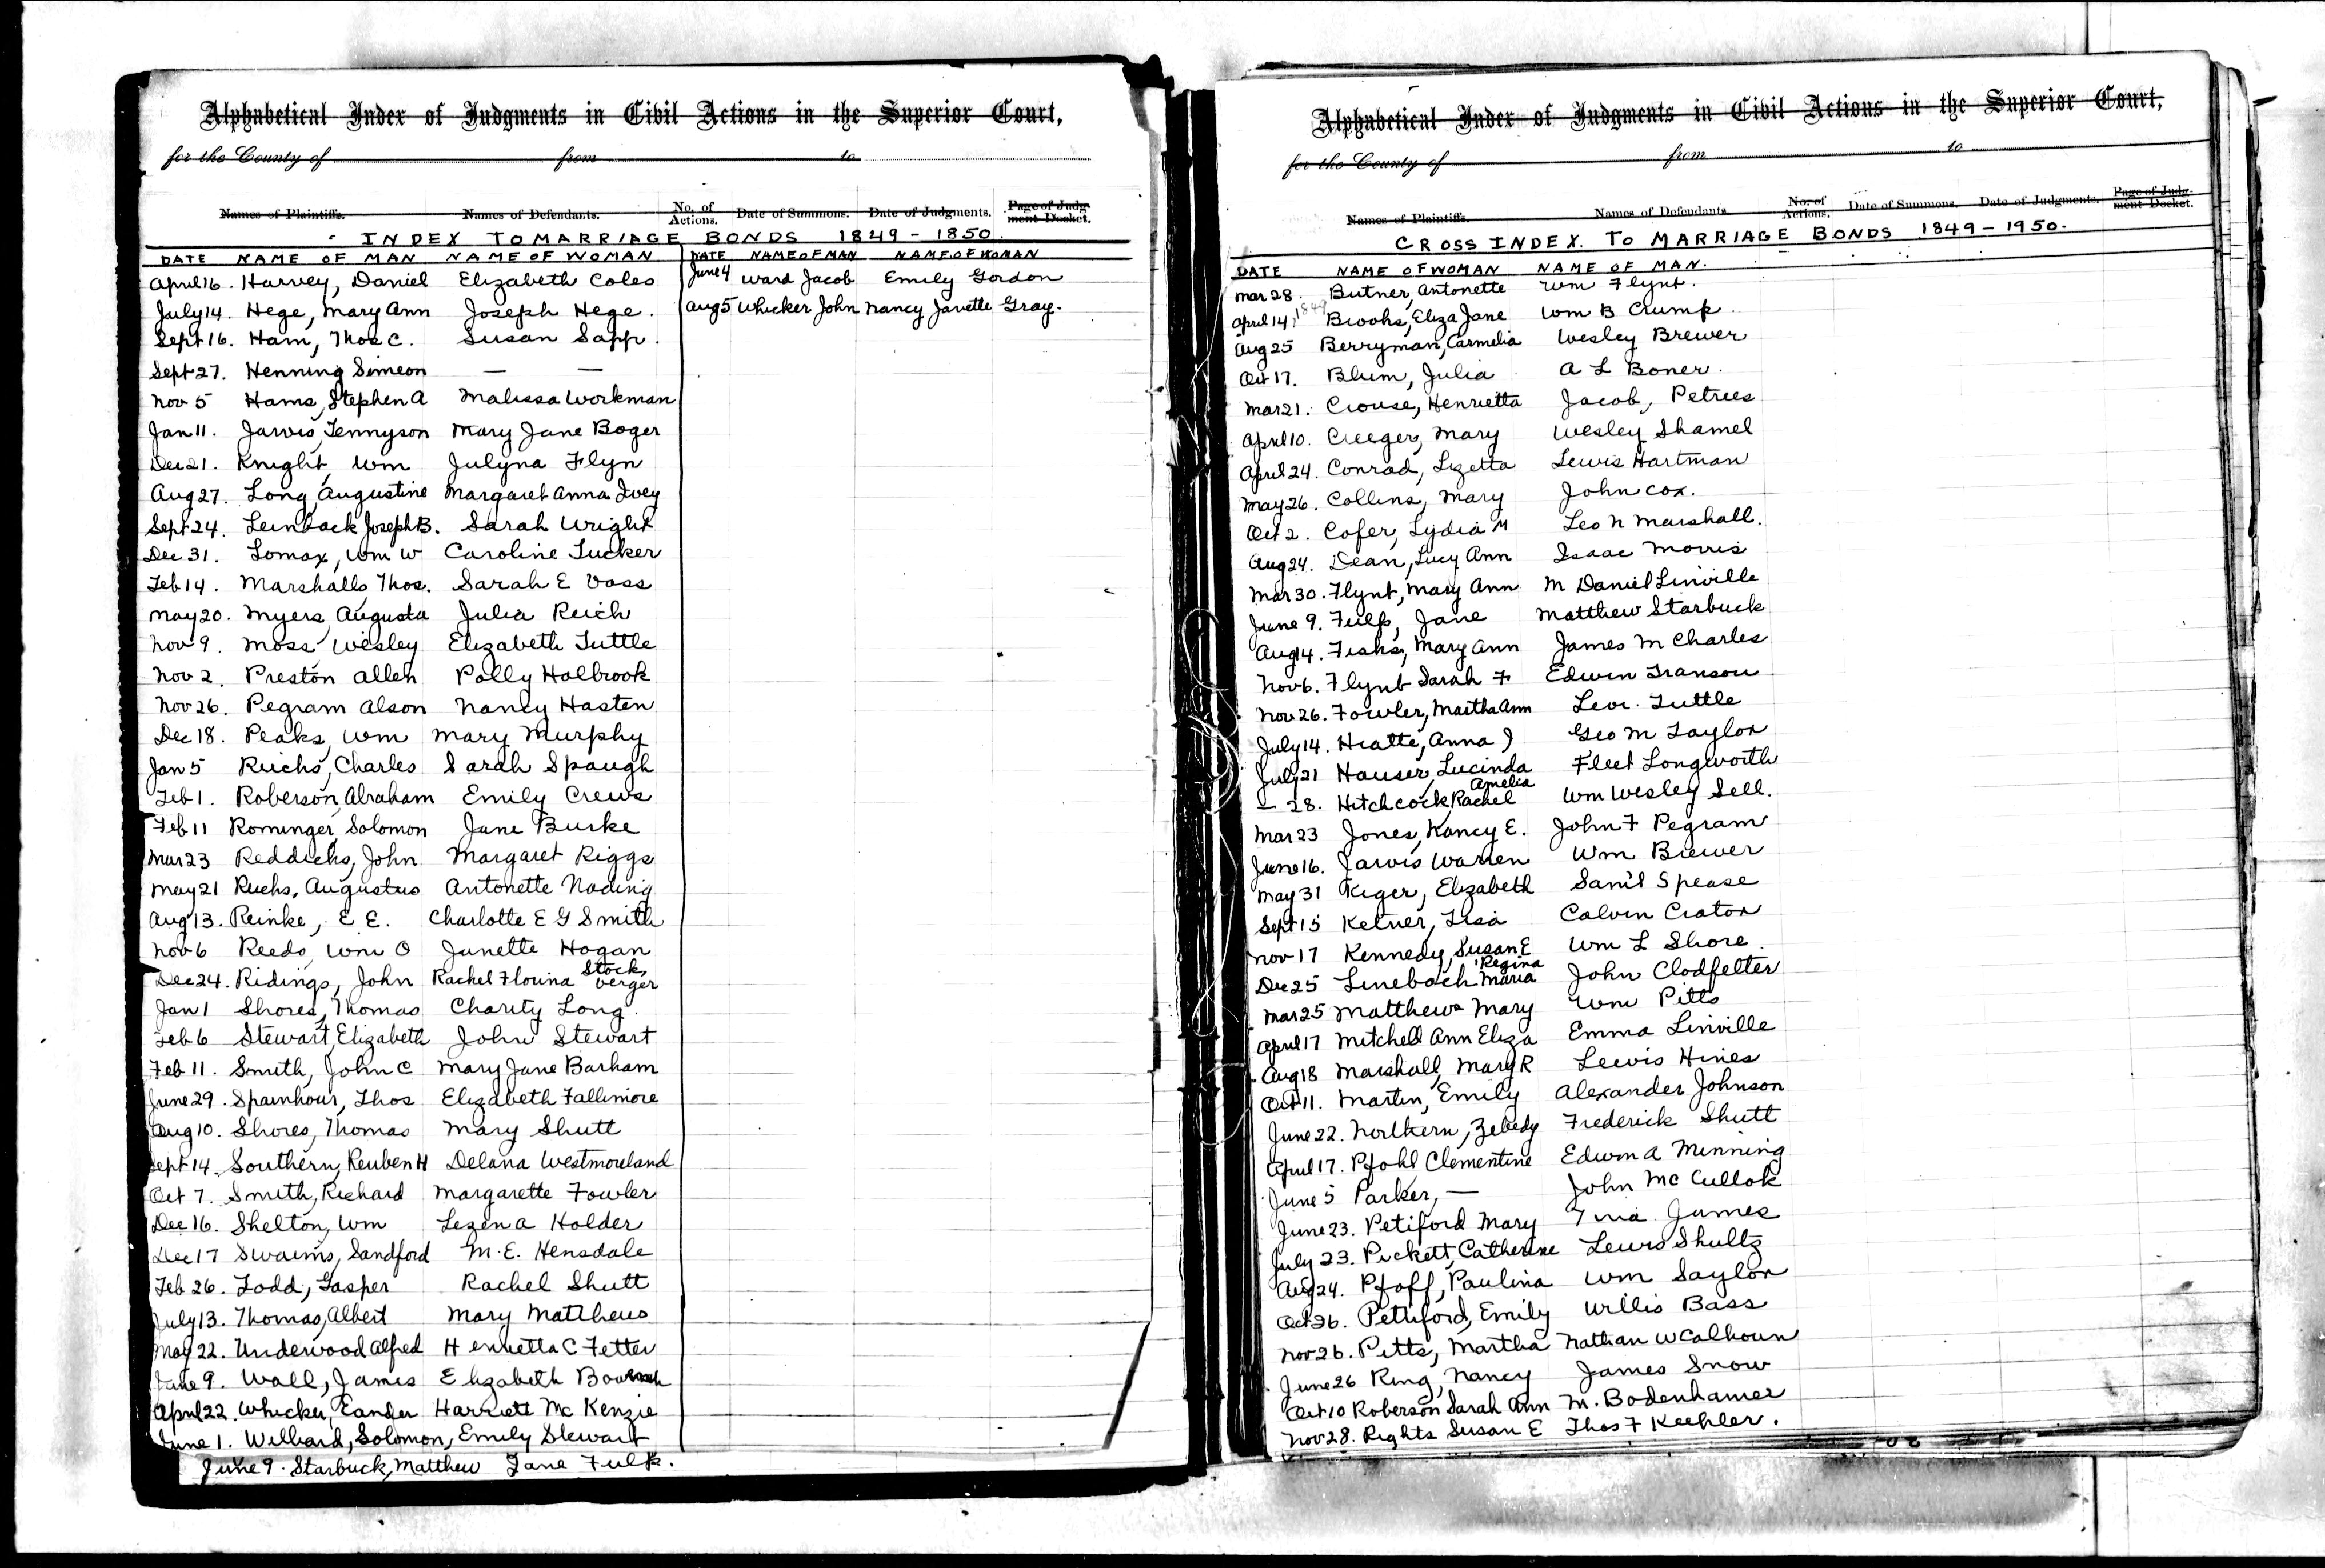 Alphabetical Index of Judgments in Civil Actions in the Superior Court,
for the County of from to
Names of Plaintiffs. Names of Defendants. No. of Actions. Date of Summons. Date of Judgments. Page of Judgment Docket.
INDEX TO MARRIAGE BONDS 1849 - 1850.
DATE NAME OF MAN NAME OF WOMAN DATE NAME OF MAN NAME OF WOMAN
April 16. Harvey, Daniel Elizabeth Coles June 4 Ward Jacob Emily Gordon
July 14. Hege, Mary Ann Joseph Hege. Aug 5 Whicker John Nancy Janette Gray.
Sept 16. Ham, Thos C. Susan Sapp.
Sept 27. Henning Simeon — —
Nov 5 Hams, Stephen A Malissa Workman
Jan 11. Jarvis, Tennyson Mary Jane Boger
Dec 21. Knight, Wm Julyna Flyn
Aug 27. Long Augustine Margaret Anna Ivey
Sept 24. Leinback Joseph B. Sarah Wright
Dec 31. Lomax, Wm W Caroline Tucker
Feb 14. Marshalls, Thos. Sarah E Voss
May 20. Myers, Augusta Julia Reich
Nov 9. Moss Wesley Elizabeth Tuttle
Nov 2. Preston Allen Polly Holbrook
Nov 26. Pegram Alson Nancy Hasten
Dec 18. Peaks, Wm Mary Murphy
Jan 5 Reichs, Charles Sarah Spaugh
Feb 1. Roberson, Abraham Emily Crews
Feb 11 Rominger, Solomon Jane Burke
Mar 23 Reddicks, John Margaret Riggs
May 21 Reichs, Augustus Antonette Nading
Aug 13. Reinke, E E. Charlotte E G Smith
Nov 6 Reeds, Wm O Janette Hogan
Dec 24. Ridings, John Rachel Florina Stockverger
Jan 1 Shores, Thomas Charity Long.
Feb 6 Stewart, Elizabeth John Stewart
Feb 11. Smith, John C Mary Jane Barham
June 29. Spainhour, Thos Elizabeth Fallimore
Aug 10. Shores, Thomas Mary Shutt
Sept 14. Southern, Reuben H Delana Westmoreland
Oct 7. Smith, Richard Margarette Fowler
Dec 16. Shelton, Wm Lezena Holder
Dec 17 Swaims, Sandford M. E. Hensdale
Feb 26. Todd, Jasper Rachel Shutt
July 13. Thomas, Albert Mary Matthews
May 22. Underwood Alfred Henrietta C Fetter
June 9. Wall, James Elizabeth
April 22. Whicker, Eander Harriett Mc Kenzie
June 1. Willard, Solomon, Emily Stewart
June 9. Starbuck, Matthew Jane Fulk.
Alphabetical Index of Judgments in Civil Actions in the Superior Court,
for the County of from to
Names of Plaintiffs. Names of Defendants. No. of Actions. Date of Summons. Date of Judgments. Page of Judgment Docket.
CROSS INDEX. TO MARRIAGE BONDS 1849 - 1950.
DATE NAME OF WOMAN NAME OF MAN.
Mar 28. Butner, Antonette Wm Flynt.
April 14, 1849 Brooks, Eliza Jane Wm B Crump.
Aug 25 Berryman, Carmelia Wesley Brewer
Oct 17. Blum, Julia A L Boner.
Mar 21. Crouse, Henrietta Jacob, Petrees
April 10. Creeger, Mary Wesley Shamel
April 24. Conrad, Lizetta Lewis Hartman
May 26. Collins, Mary John Cox.
Oct 2. Cofer, Lydia M Leo N Marshall.
Aug 24. Dean, Lucy Ann Isaac Morris
Mar 30. Flynt, Mary Ann M Daniel Linville
June 9. Fulp, Jane Matthew Starbuck
Aug 14. Fisks, Mary Ann James M Charles
Nov 6. Flynt Sarah F Edwin Transou
Nov 26. Fowler, Martha Ann Levi. Tuttle
July 14. Hiatte, Anna J Geo M Taylor
July 21 Hauser, Lucinda Fleet Longworth
— 28. Hitchcock, Rachel Amelia Wm Wesley Sell.
Mar 23 Jones, Nancy E. John F Pegram
June 16. Jarvis Warren Wm Brewer
May 31 Kiger, Elizabeth Saml Spease
Sept 15 Ketner, Lisa Calvin Crator
Nov 17 Kennedy, Susan E Wm L Shore.
Dec 25 Linebach Regina Maria John Clodfelter
Mar 25 Matthews Mary Wm Pitts
April 17 Mitchell Ann Eliza Emma Linville
Aug 18 Marshall, Mary R Lewis Hines
Oct 11. Martin, Emily Alexander Johnson
June 22. Northern, Zebedy Frederick Shutt
April 17. Pfohl Clementine Edwin A Minning
June 5 Parker, — John Mc Cullok
June 23. Petiford Mary James
July 23. Pickett, Catherine Lewis Shultz
Aug 24. Pfaff, Paulina Wm Saylor
Oct 26. Pettiford, Emily Willis Bass
Nov 26. Pitts, Martha Nathan W Calhoun
June 26 Ring, Nancy James Snow
Oct 10 Roberson Sarah Ann M. Bodenhamer
Nov 28. Rights Susan E Thos F Keehler.